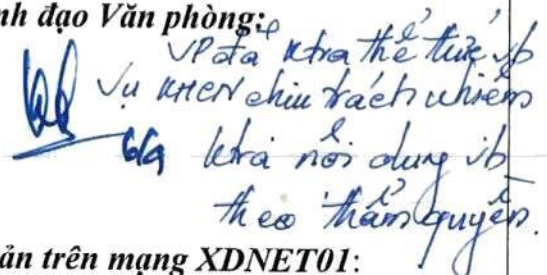 nh đạo Văn phòng:
VP đã ktra thể thức vb
Vụ KHCN chịu trách nhiệm
6/9 ktra nội dung vb
theo thẩm quyền.
ản trên mạng XDNET01: